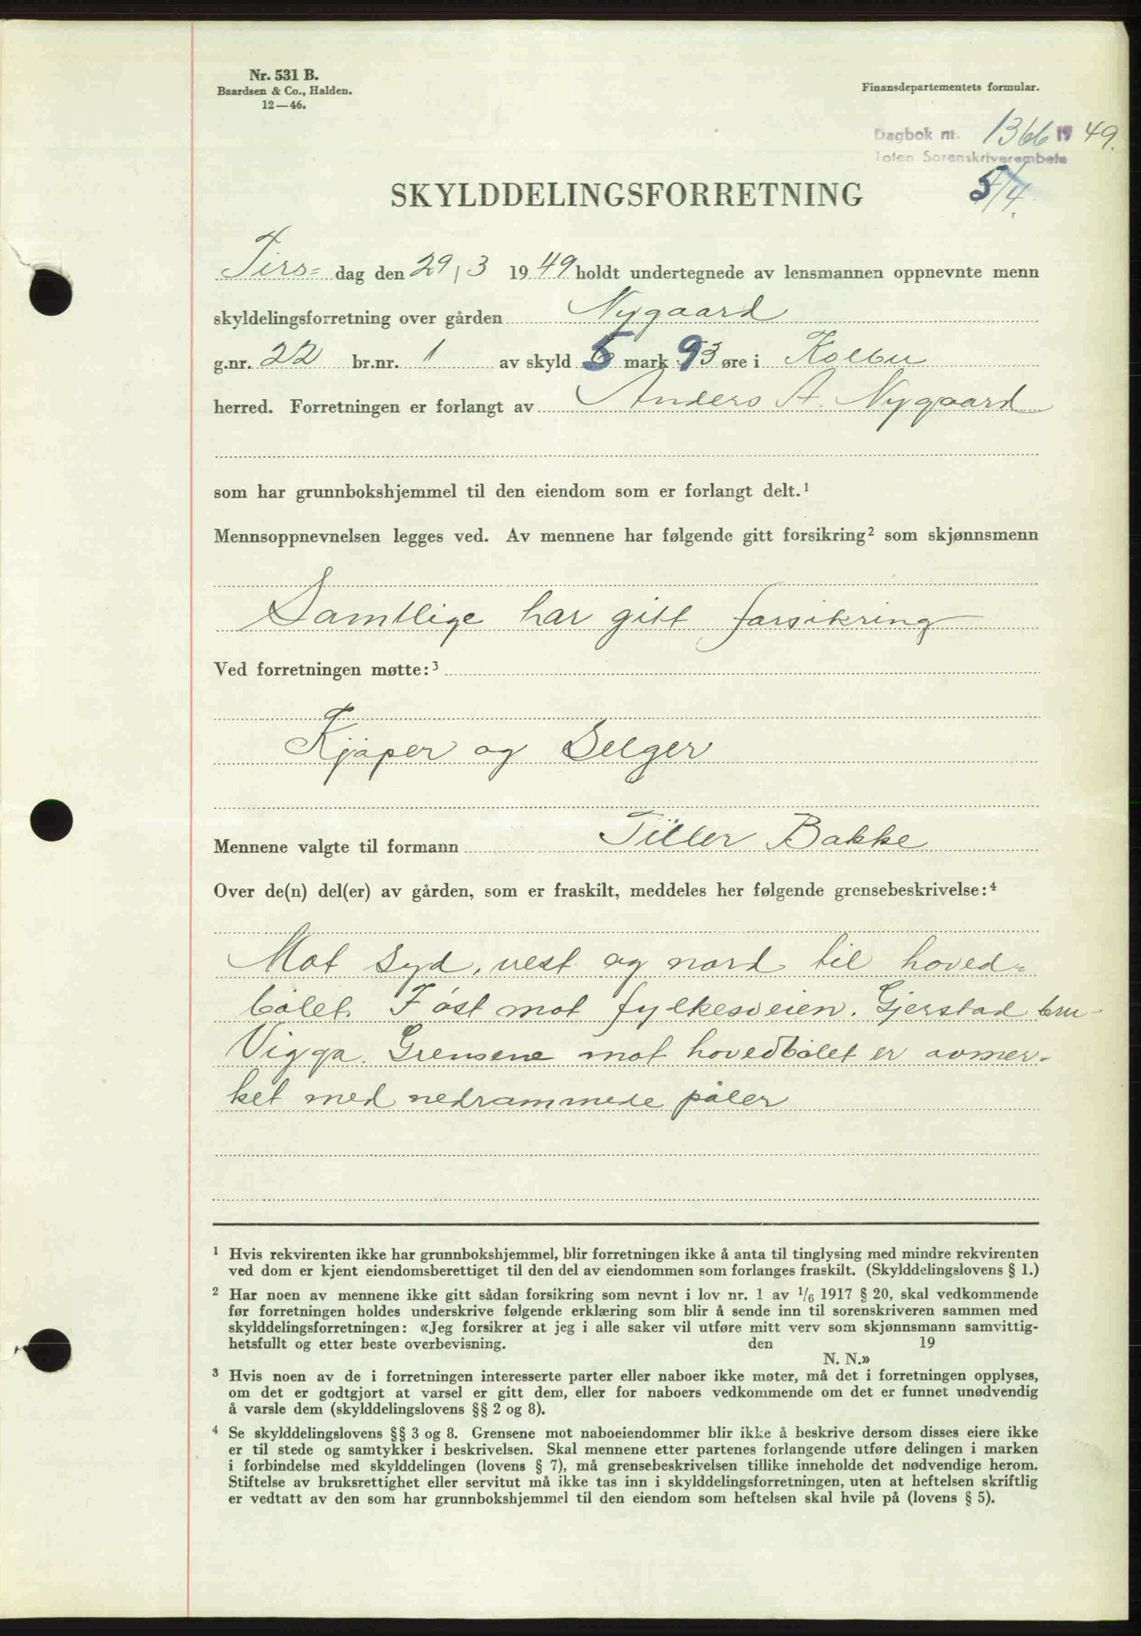 Nr. 531 B.
Baardsen & Co., Halden.
12—46.
Finansdepartementets formular.
Dagbok nr. 1366 19 49.
Toten Sorenskriverembete
5/4.
SKYLDDELINGSFORRETNING
Tirs- dag den 29/3 1949 holdt undertegnede av lensmannen oppnevnte menn
skyldelingsforretning over gården Nygaard
g.nr. 22 br.nr. 1 av skyld 5 mark 93 øre i Kolbu
herred. Forretningen er forlangt av Anders A. Nygaard
som har grunnbokshjemmel til den eiendom som er forlangt delt.¹
Mennsoppnevnelsen legges ved. Av mennene har følgende gitt forsikring² som skjønnsmenn
Samtlige har gitt forsikring
Ved forretningen møtte:³
Kjøper og Selger
Mennene valgte til formann Tiller Bakke
Over de(n) del(er) av gården, som er fraskilt, meddeles her følgende grensebeskrivelse:⁴
Mot syd, vest og nord til hoved-
bølet. I øst mot fylkesveien. Gjerstad bru-
Vigga. Grensene mot hovedbølet er avmer-
ket med nedrammede påler
¹ Hvis rekvirenten ikke har grunnbokshjemmel, blir forretningen ikke å anta til tinglysing med mindre rekvirenten
ved dom er kjent eiendomsberettiget til den del av eiendommen som forlanges fraskilt. (Skylddelingslovens § 1.)
² Har noen av mennene ikke gitt sådan forsikring som nevnt i lov nr. 1 av 1/6 1917 § 20, skal vedkommende
før forretningen holdes underskrive følgende erklæring som blir å sende inn til sorenskriveren sammen med
skylddelingsforretningen: «Jeg forsikrer at jeg i alle saker vil utføre mitt verv som skjønnsmann samvittig-
hetsfullt og etter beste overbevisning. den 19
N. N.»
³ Hvis noen av de i forretningen interesserte parter eller naboer ikke møter, må det i forretningen opplyses,
om det er godtgjort at varsel er gitt dem, eller for naboers vedkommende om det er funnet unødvendig
å varsle dem (skylddelingslovens §§ 2 og 8).
⁴ Se skylddelingslovens §§ 3 og 8. Grensene mot naboeiendommer blir ikke å beskrive dersom disses eiere ikke
er til stede og samtykker i beskrivelsen. Skal mennene etter partenes forlangende utføre delingen i marken
i forbindelse med skylddelingen (lovens § 7), må grensebeskrivelsen tillike inneholde det nødvendige herom.
Stiftelse av bruksrettighet eller servitut må ikke tas inn i skylddelingsforretningen, uten at heftelsen skriftlig
er vedtatt av den som har grunnbokshjemmel til den eiendom som heftelsen skal hvile på (lovens § 5).